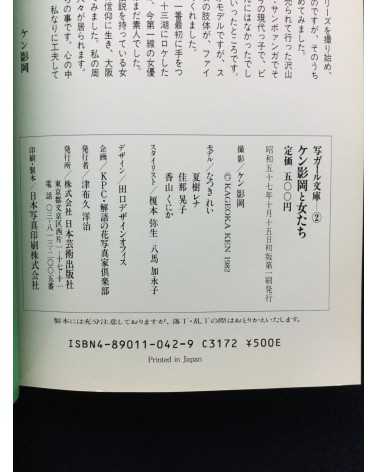 リーズを撮り始め、
のですが、そのうち
めてみました。
売られて行った沢山
・サンボァンガでそ
りの現代っ子で、ビ
にはなかったでし
いったところです。
スモデルですが、ス
の肢体が、ファイ
くれました。
一番最初に手をつ
十三湖にロケした
、今、第一線の女優
まだ素人でした。
説を持っている女
信仰に生き、大阪
みました。私の周
々が居られます。
らの事です。心の中
私なりに工夫して
ケン影岡
写ガール文庫・②
ケン影岡と女たち
定価 五〇〇円
昭和五十七年十月十五日初版第一刷発行
撮影/ケン影岡
© KAGEOKA KEN 1982
モデル/なつき れい
夏樹 レナ
佳那 晃子
香山 くにか
スタイリスト/榎本 弥生 八馬 加永子
デザイン/田口デザインオフィス
企画/KPC・解語の花写真家倶楽部
発行者/津布久 洋治
発行所/株式会社 日本芸術出版社
東京都文京区西片一-十七-十一
電話 〇三-八一三-二〇〇五番
印刷・製本/日本写真印刷株式会社
製本には充分注意しておりますが、落丁・乱丁の際はおとりかえいたします。
ISBN4-89011-042-9 C3172 ¥500E
Printed in Japan